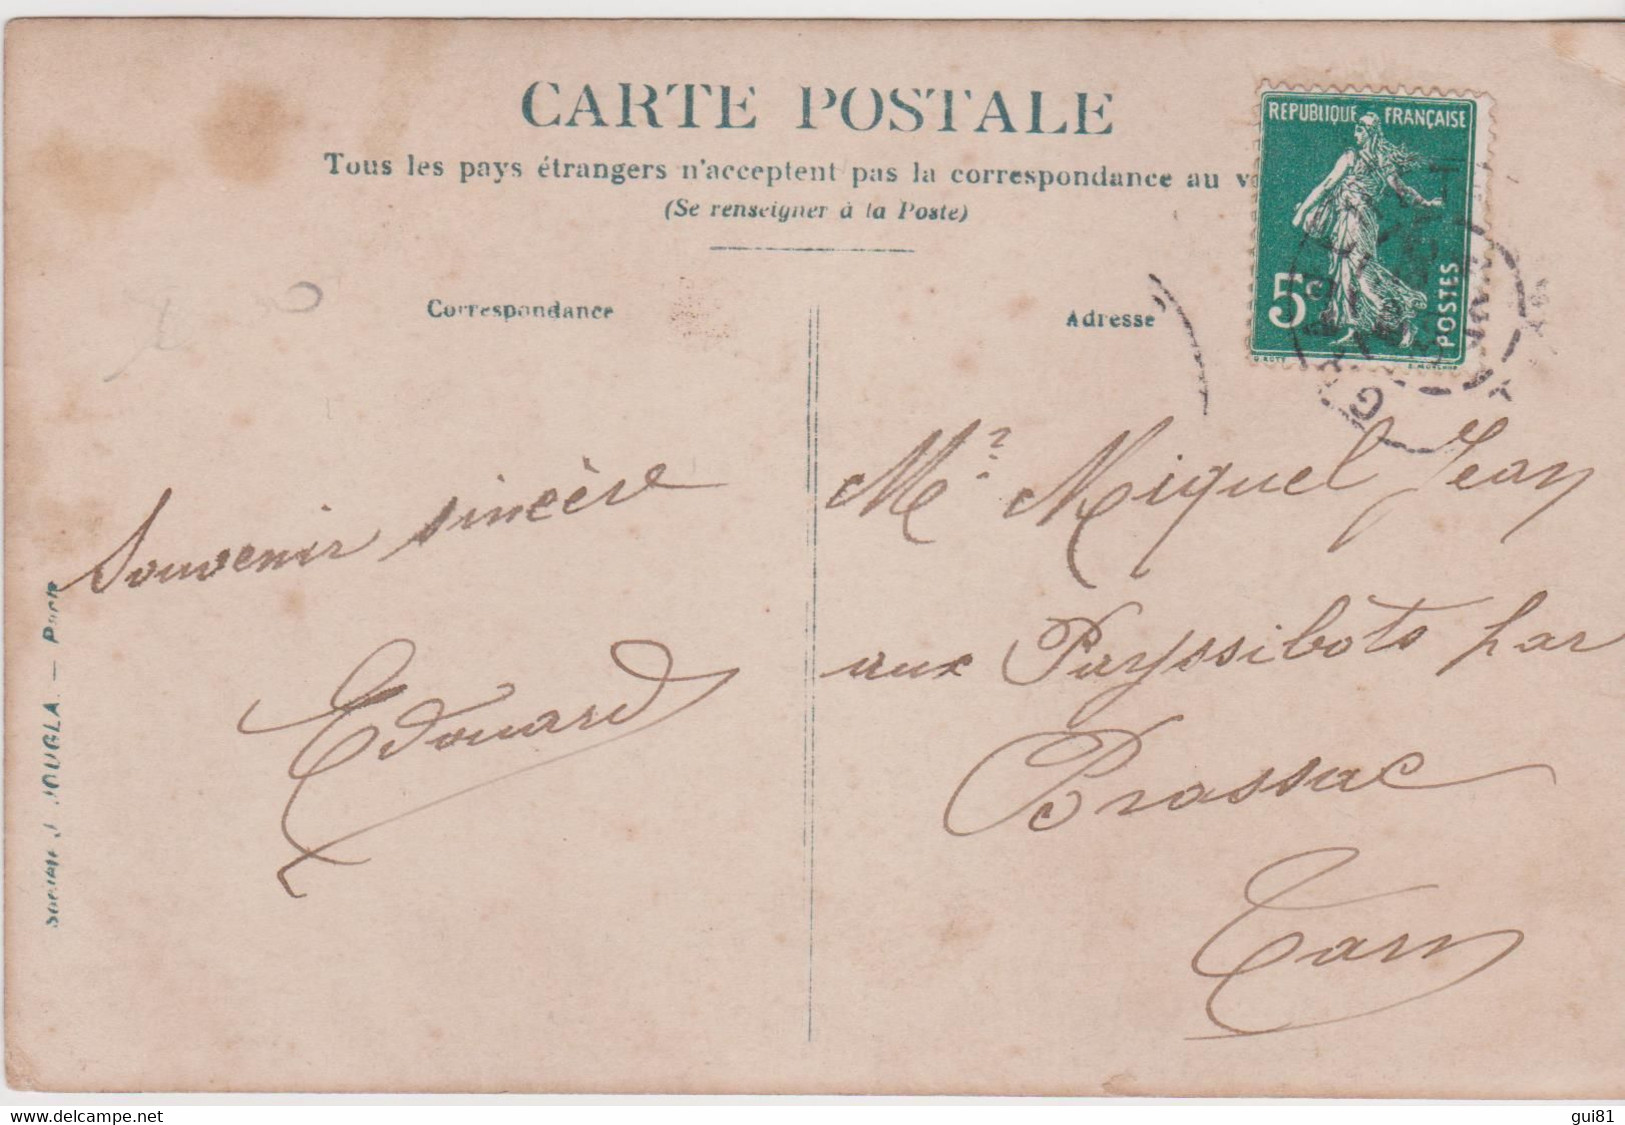 CARTE POSTALE
Tous les pays étrangers n'acceptent pas la correspondance au
(Se renseigner à la Poste)
REPUBLIQUE FRANÇAISE
5c
POSTES
Correspondance
Adresse
Souvenir sincère
Edouard
Mr. Miquel Jean
aux Payssibots par
Brassac
Tarn
J. JOUGLA. —
www.delcampe.net
gui81